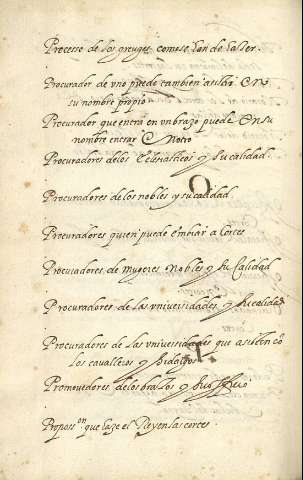 Processo de los greuges como se han de hazer.
Procurador de uno puede tambien asistir en
su nombre propio
Procurador que entra en un brazo puede en su
nombre entrar en otro
Procuradores de los eclesiasticos y su calidad.
Procuradores de los nobles y su calidad
Procuradores quien puede embiar a cortes
Procuradores de mugeres nobles y su calidad
Procuradores de las universidades y su calidad
Procuradores de las universidades que asisten cõ
los cavalleros y hidalgos
Promovedores de los brazos y su officio
Proposs.on que haze el Rey en las cortes.